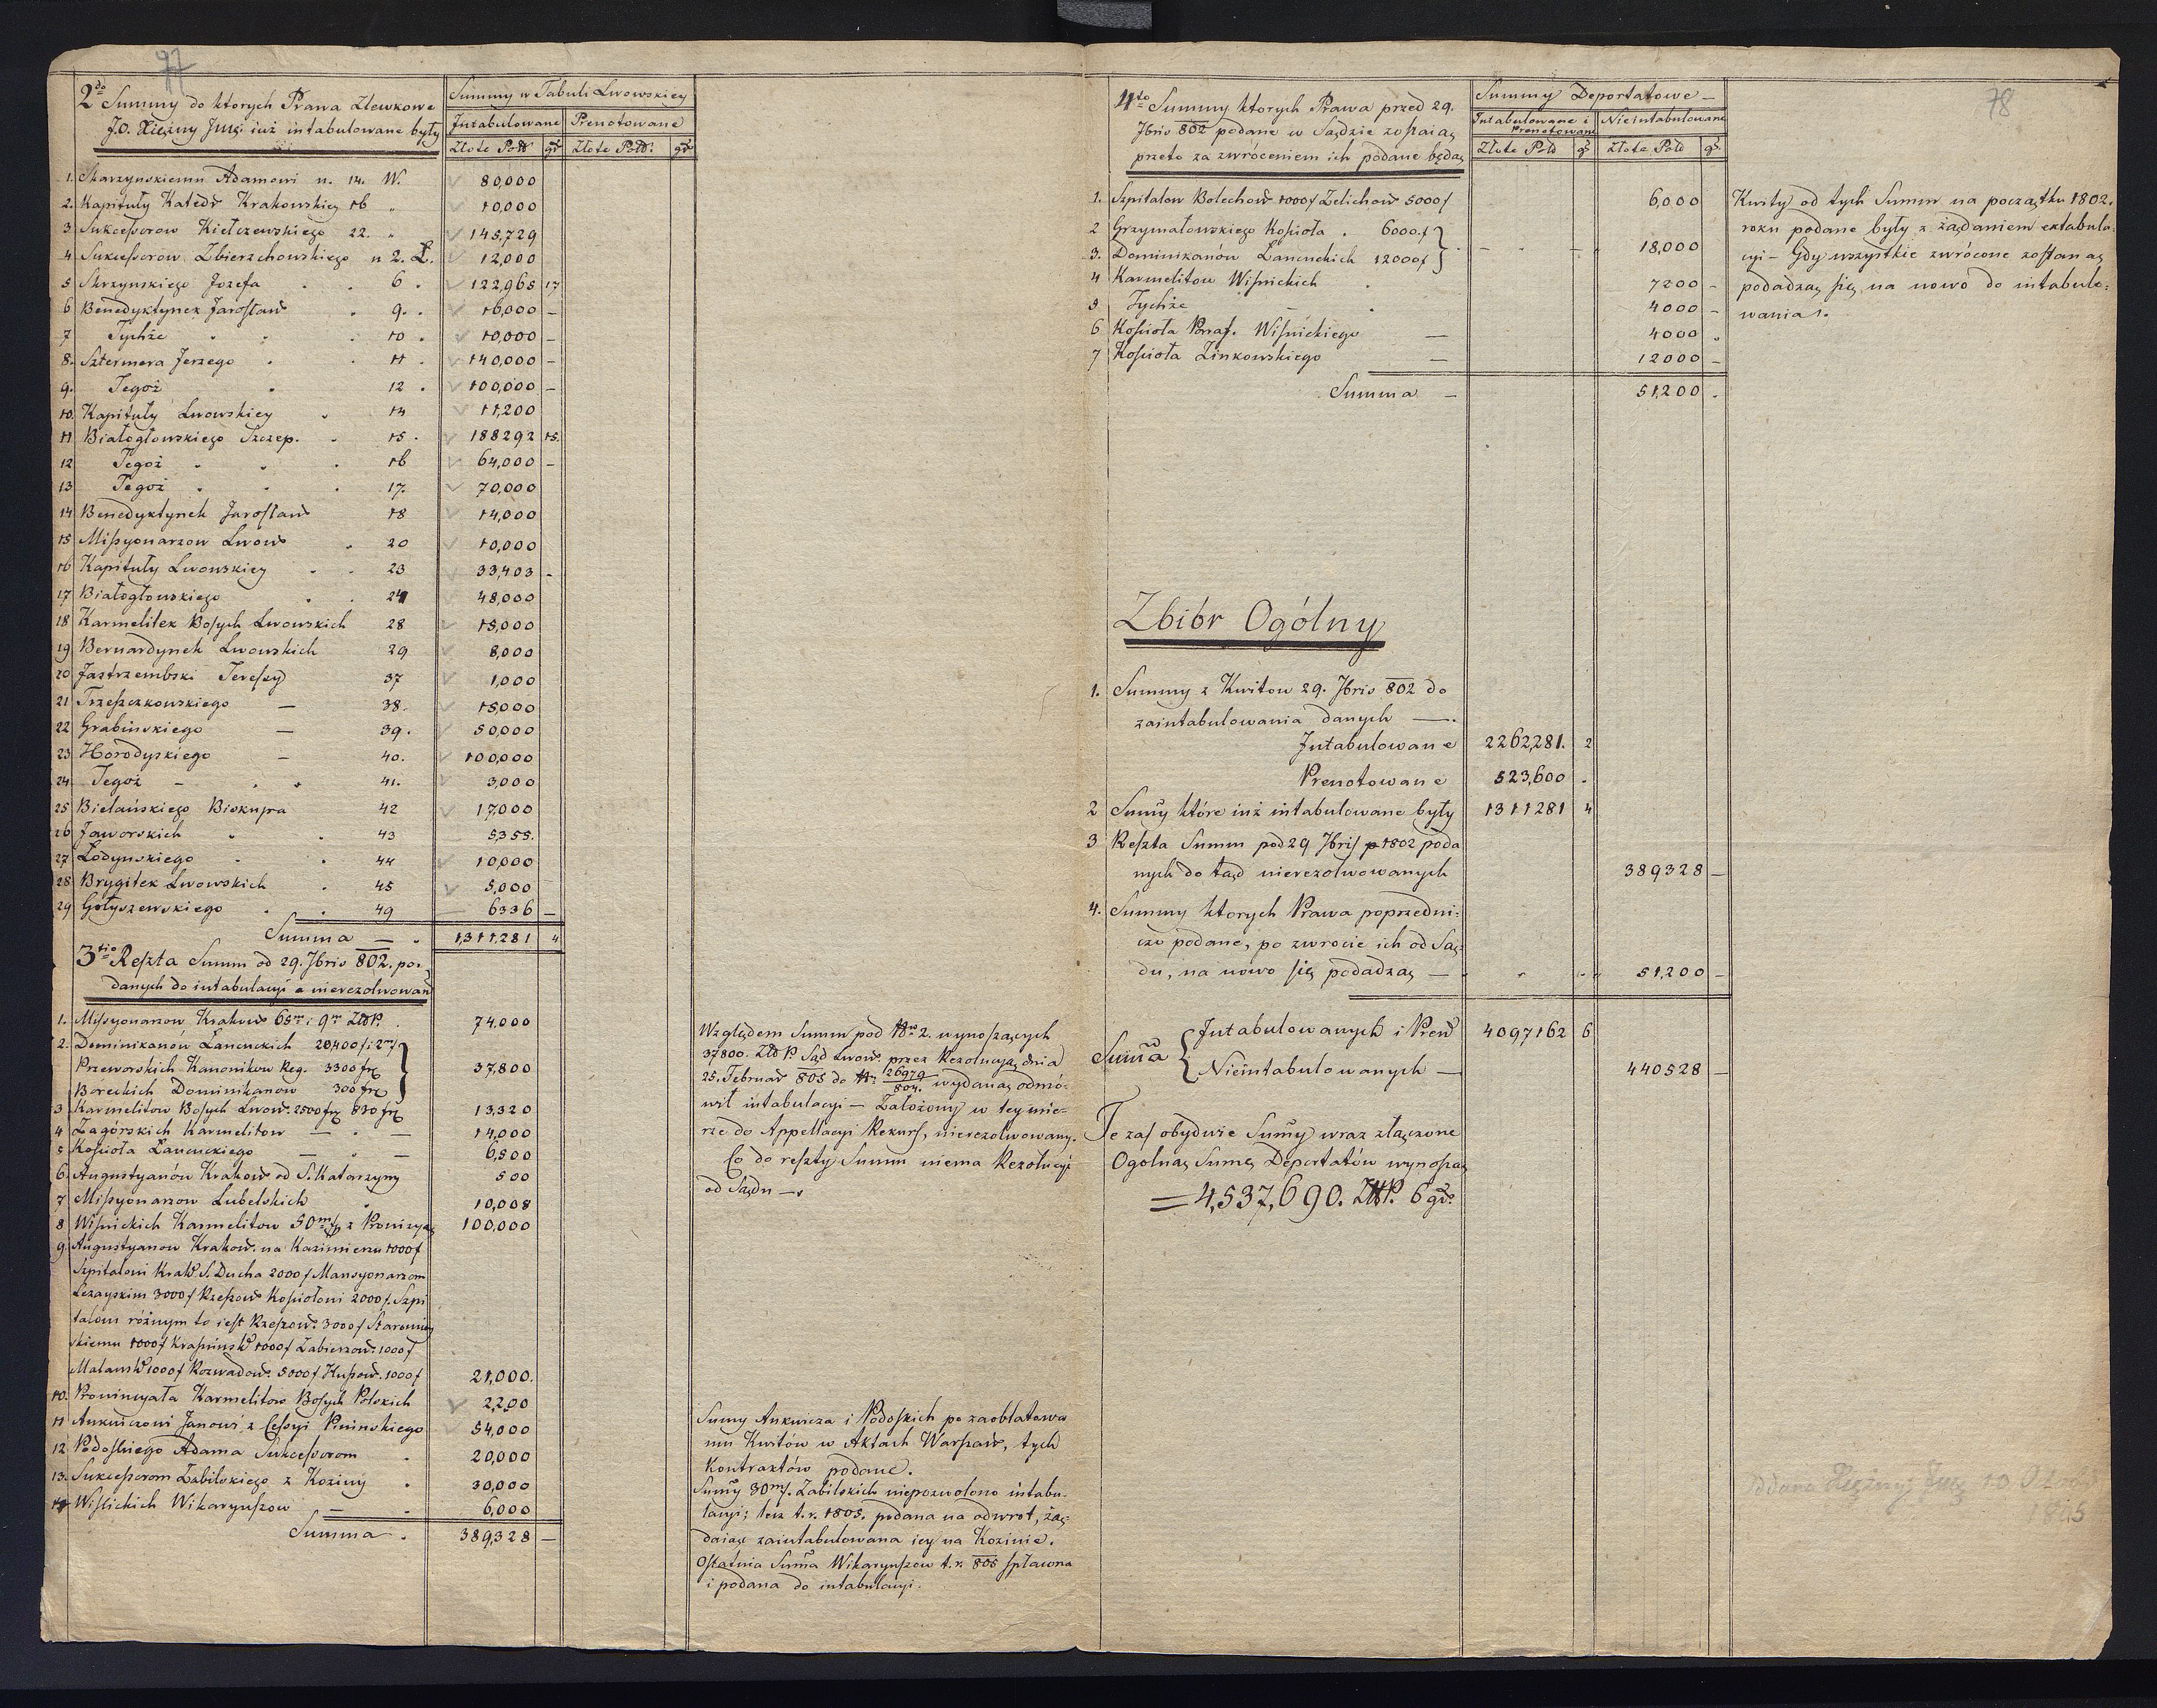 97
2do Summy do ktorych Prawa Zlewkowe
J.O. Xiężny Jmci iuż intabulowane były
Summy w Tabuli Lwowskiey
Intabulowane Prenotowane
Złote Pold gr Złote Pold. gr
1. Skarzynskiemu Adamowi n. 14. W. 80,000
2. Kapituły Katedr Krakowskiey 16 „ 10,000
3 Sukcessorow Kiełczewskiego 22. „ 145,729
4 Sukcessorow Zbierzchowskiego n 2. L. 12,000
5 Skrzynskiego Jozefa 6 . 122,965 17
6 Benedyktynek Jarosław 9. . 16,000 –
7 Tychże 10 . 10,000 –
8. Sztermera Jerzego 11 . 140,000 –
9. Tegoż 12 . 100,000 –
10. Kapituły Lwowskiey 14 11,200
11 Białogłowskiego Szczep. 15 . 188292 15.
12 Tegoż 16 64,000 –
13 Tegoż 17. 70,000
14 Benedyktynek Jarosław 18 14,000
15 Missyonarzow Lwow 20 10,000
16 Kapituły Lwowskiey 23 33,403 –
17 Białogłowskiego 24 48,000
18 Karmelitek Bosych Lwowskich 28 15,000
19 Bernardynek Lwowskich 29 8,000
20 Jastrzembski Teressy 37 1,000
21 Trzeszczkowskiego — 38. 15,000
22 Grabinskiego — 39. 50,000
23 Horodyskiego — 40. 100,000
24 Tegoż – 41. 3,000
25 Bielańskiego Biskupa 42 17,000
26 Jaworskich 43 5,355.
27 Łodynskiego 44 10,000
28 Brygitek Lwowskich 45 5,000
29 Gołyszewskiego 49 6336 –
Summa — . 1,311,281 4
3tio Reszta Summ od 29. 7bris 802. po-
danych do intabulacyi a nierezolwowan
1. Missyonarzow Krakow 65m i 9m ZłP. 74,000
2. Dominikanów Łancuckich 20400 f i 2m f
Przeworskich Kanonikow Reg. 3300 frę 37,800
Boreckich Dominikanow 300 frę
3 Karmelitow Bosych Lwow. 2500 frę 830 frę 13,320
4 Zagórskich Karmelitow — . — 14,000
5 Kosioła Łancuckiego — „ — 6,500
6. Augustyanów Krakow od S. Katarzyny 500
7 Missyonarzow Lubelskich 10,008
8 Wisnickich Karmelitow 50m f z Prowizyą 100,000
9 Augustyanow Krakow. na Kazimierzu 1000 f
Szpitalowi Krak S. Ducha 2000 f Mansyonarzom
Leżayskim 3000 f Rzeszow Kosiołowi 2000 f. Szpi
talom różnym to iest Rzeszow. 3000 f Staromiey
skiemu 1000 f Krasińsk 1000 f Zabierzow. 1000 f
Malawsk 1000 f Rozwadow. 5000 f Husow. 1000 f 21,000.
10. Prowincyała Karmelitow Bosych Polskich 2,200
11 Ankwiczowi Janowi z Cessyi Pininskiego 54,000
12 Podoskiego Adama Sukcessorom . 20,000
13. Sukcessorom Zabilskiego z Koziny . 30,000
14 Wislickich Wikaryuszow — . 6,000
Summa . 389,328 —
Względem Summ pod Nro 2. wynoszących
37800. Zł P. Sąd Lwow. przez Rezolucyą dnia
25. Februar 805 do N: 26979/804. wydaną odmó-
wił intabulacyi – Założony w tey mie-
rze do Appellacyi Rekurs, nierezolwowany.
Co do reszty Summ niema Rezolucyi
od Sądu —.
Sumy Ankwicza i Podoskich po zaoblatowa
niu Kwitów w Aktach Warszaw, tych
Kontraktów podane.
Sumy 30m f. Zabilskich niepozwolono intabu-
lacyi; lecz t. r. 1805. podana na odwrot, żą-
daiąc zaintabulowana iey na Kozinie.
Ostatnia Suma Wikaryuszow t. r. 805 spłacona
i podana do intabulacyi.
78
4to Summy ktorych Prawa przed 29.
7bris 802 podane w Sądzie zostaią
przeto za zwróceniem ich podane będą
Summy Deportatowe –
Intabulowane i Prenotowane Nieintabulowane
Złote Pold gr Złote Pold gr.
1. Szpitalow Bolechow 1000 f Zelichow 5000 f 6,000
2 Grzymałowskiego Kosioła . 6000. f
3. Dominikanów Łancuckich 12000 f 18,000
4 Karmelitow Wisnickich 7200 –
5 Tychże 4000 –
6 Kosioła Paraf. Wisnickiego — 4000 .
7 Kosioła Zinkowskiego — 12000 –
Summa – 51,200 .
Kwity od tych Summ na początku 1802.
roku podane były z żądaniem extabula-
cyi – Gdy wszystkie zwrócone zostaną
podadzą się na nowo do intabulo-
wania.
Zbiór Ogólny
1. Summy z Kwitow 29. 7bris 802 do
zaintabulowania danych —.
Intabulowane 2262,281. 2
Prenotowane 523,600 .
2 Sumy które iuż intabulowane były 1311281 4
3 Reszta Summ pod 29 7bris 1802 poda
nych do tąd nierezolwowanych 389328 —
4. Summy ktorych Prawa poprzedni-
czo podane, po zwrocie ich od Są-
du, na nowo się podadzą — 51,200 —
Suma { Intabulowanych i Pren 4097162 6
Nieintabulowanych — 440528 —
Te zaś obydwie Sumy wraz złączone
Ogolną Sumę Deportatów wynoszą
= 4,537,690. ZłP. 6 gr.
10